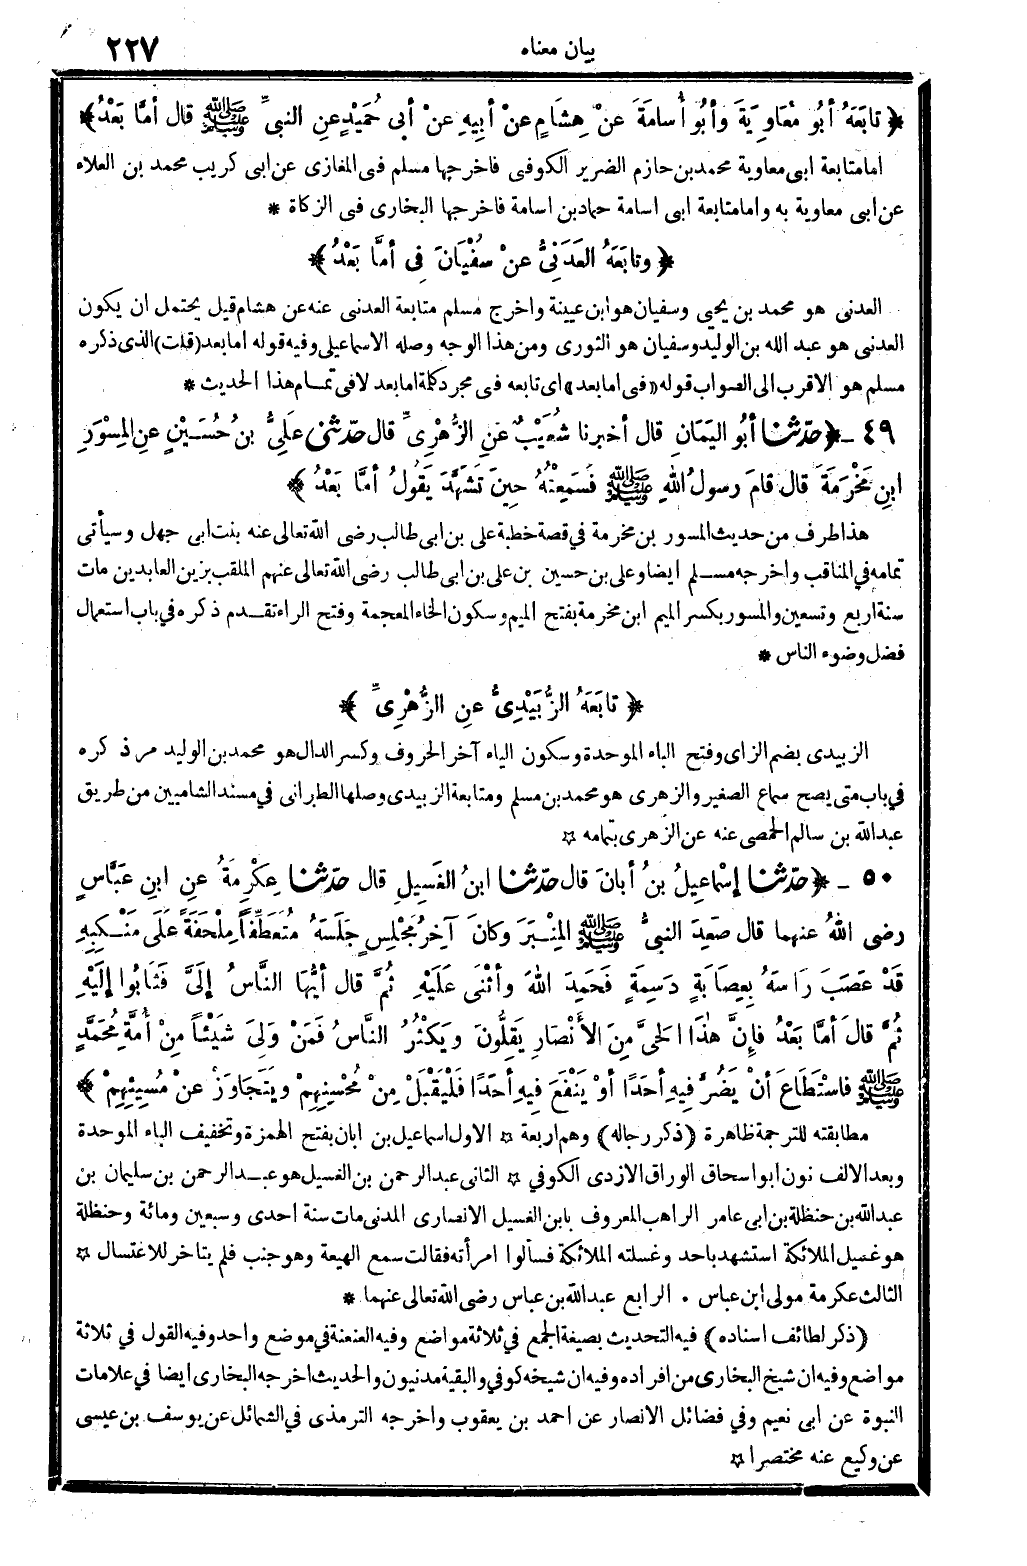 بيان معناه
٢٢٧
﴿ تابَعَهُ أبُو مُعَاوِيَةَ وأبُو أُسامَةَ عَنْ هِشَامٍ عنْ أبِيهِ عنْ أبى حُمَيْدٍ عنِ النبىِّ ﷺ قال أمَّا بَعْدُ ﴾
امامتابعة ابى معاوية محمد بن حازم الضرير الكوفى فاخرجها مسلم فى المغازى عن ابى كريب محمد بن العلاء
عن ابى معاوية به وامامتابعة ابى اسامة حماد بن اسامة فاخرجها البخارى فى الزكاة *
﴿ وتابَعَهُ العَدَنِىُّ عنْ سُفْيَانَ فِى أمَّا بَعْدُ ﴾
العدنى هو محمد بن يحيى وسفيان هو ابن عيينة واخرج مسلم متابعة العدنى عنه عن هشام قيل يحتمل ان يكون
العدنى هو عبد الله بن الوليد وسفيان هو الثورى ومن هذا الوجه وصله الاسماعيلى وفيه قوله اما بعد (قلت) الذى ذكره
مسلم هو الاقرب الى الصواب قوله «فى اما بعد» اى تابعه فى مجرد كلة اما بعد لا فى تمام هذا الحديث *
٤٩ ـ ﴿ حدّثنا أبُو اليَمَانِ قال أخبرنا شُعَيْبٌ عَنِ الزُّهْرِىِّ قال حدّثنى علَىُّ بنُ حُسَيْنٍ عنِ المِسْوَرِ
ابنِ مَخْرَمَةَ قال قامَ رسولُ اللهِ ﷺ فَسَمِعْتُهُ حِينَ تَشَهَّدَ يَقُولُ أمَّا بَعْدُ ﴾
هذا طرف من حديث المسور بن مخرمة في قصة خطبة على بن ابى طالب رضى الله تعالى عنه بنت ابى جهل وسيأتى
تمامه في المناقب واخرجه مسلم ايضا وعلى بن حسين بن على بن ابى طالب رضى الله تعالى عنهم الملقب بزين العابدين مات
سنة اربع وتسعين والمسور بكسر الميم ابن مخرمة بفتح الميم وسكون الخاء المعجمة وفتح الراء تقدم ذكره في باب استعمال
فضل وضوء الناس *
﴿ تابَعَهُ الزُّبَيْدِىُّ عنِ الزُّهْرِىِّ ﴾
الزبيدى بضم الزاى وفتح الباء الموحدة وسكون الياء آخر الحروف وكسر الدال هو محمد بن الوليد مر ذكره
في باب متى يصح سماع الصغير والزهرى هو محمد بن مسلم ومتابعة الزبيدى وصلها الطبرانى في مسند الشاميين من طريق
عبد الله بن سالم الحمصى عنه عن الزهرى بتمامه ☆
٥٠ ـ ﴿ حدّثنا إسْماعِيلُ بنُ أبانَ قال حدّثنا ابنُ الغَسِيلِ قال حدّثنا عِكْرِمَةُ عنِ ابنِ عَبَّاسٍ
رضى اللهُ عنهما قال صَعِدَ النبىُّ ﷺ المِنْبَرَ وكانَ آخِرُ مَجْلِسٍ جَلَسَهُ مُتَعَطِّفاً مِلْحَفَةً عَلَى مَنْكِبِهِ
قَدْ عَصَبَ رَاسَهُ بِعِصَابَةٍ دَسِمَةٍ فَحَمِدَ اللهَ وأثْنَى عَلَيْهِ ثُمَّ قال أيُّهَا النَّاسُ إلَىَّ فَثَابُوا إلَيْهِ
ثُمَّ قالَ أمَّا بَعْدُ فإِنَّ هٰذَا الحَىَّ مِنَ الأنْصَارِ يَقِلُّونَ ويَكْثُرُ النَّاسُ فَمَنْ وَلِىَ شَيْئاً مِنْ أُمَّةِ مُحَمَّدٍ
ﷺ فاسْتَطَاعَ أنْ يَضُرَّ فِيهِ أحَدًا أوْ يَنْفَعَ فِيهِ أحَدًا فَلْيَقْبَلْ مِنْ مُحْسِنِهِمْ ويَتَجَاوَزْ عنْ مُسِيئِهِمْ ﴾
مطابقته للترجمة ظاهرة (ذكر رجاله) وهم اربعة ☆ الاول اسماعيل بن ابان بفتح الهمزة وتخفيف الباء الموحدة
وبعد الالف نون ابو اسحاق الوراق الازدى الكوفي ☆ الثانى عبد الرحمن بن الغسيل هو عبد الرحمن بن سليمان بن
عبد الله بن حنظلة بن ابى عامر الراهب المعروف بابن الغسيل الانصارى المدنى مات سنة احدى وسبعين ومائة وحنظلة
هو غسيل الملائكة استشهد باحد وغسلته الملائكة فسألوا امرأته فقالت سمع الهيعة وهو جنب فلم يتاخر للاغتسال ☆
الثالث عكرمة مولى ابن عباس • الرابع عبد الله بن عباس رضى الله تعالى عنهما *
(ذكر لطائف اسناده) فيه التحديث بصيغة الجمع في ثلاثة مواضع وفيه العنعنة في موضع واحد وفيه القول في ثلاثة
مواضع وفيه ان شيخ البخارى من افراده وفيه ان شيخه كوفي والبقية مدنيون والحديث اخرجه البخارى ايضا في علامات
النبوة عن ابى نعيم وفي فضائل الانصار عن احمد بن يعقوب واخرجه الترمذى في الشمائل عن يوسف بن عيسى
عن وكيع عنه مختصرا ☆